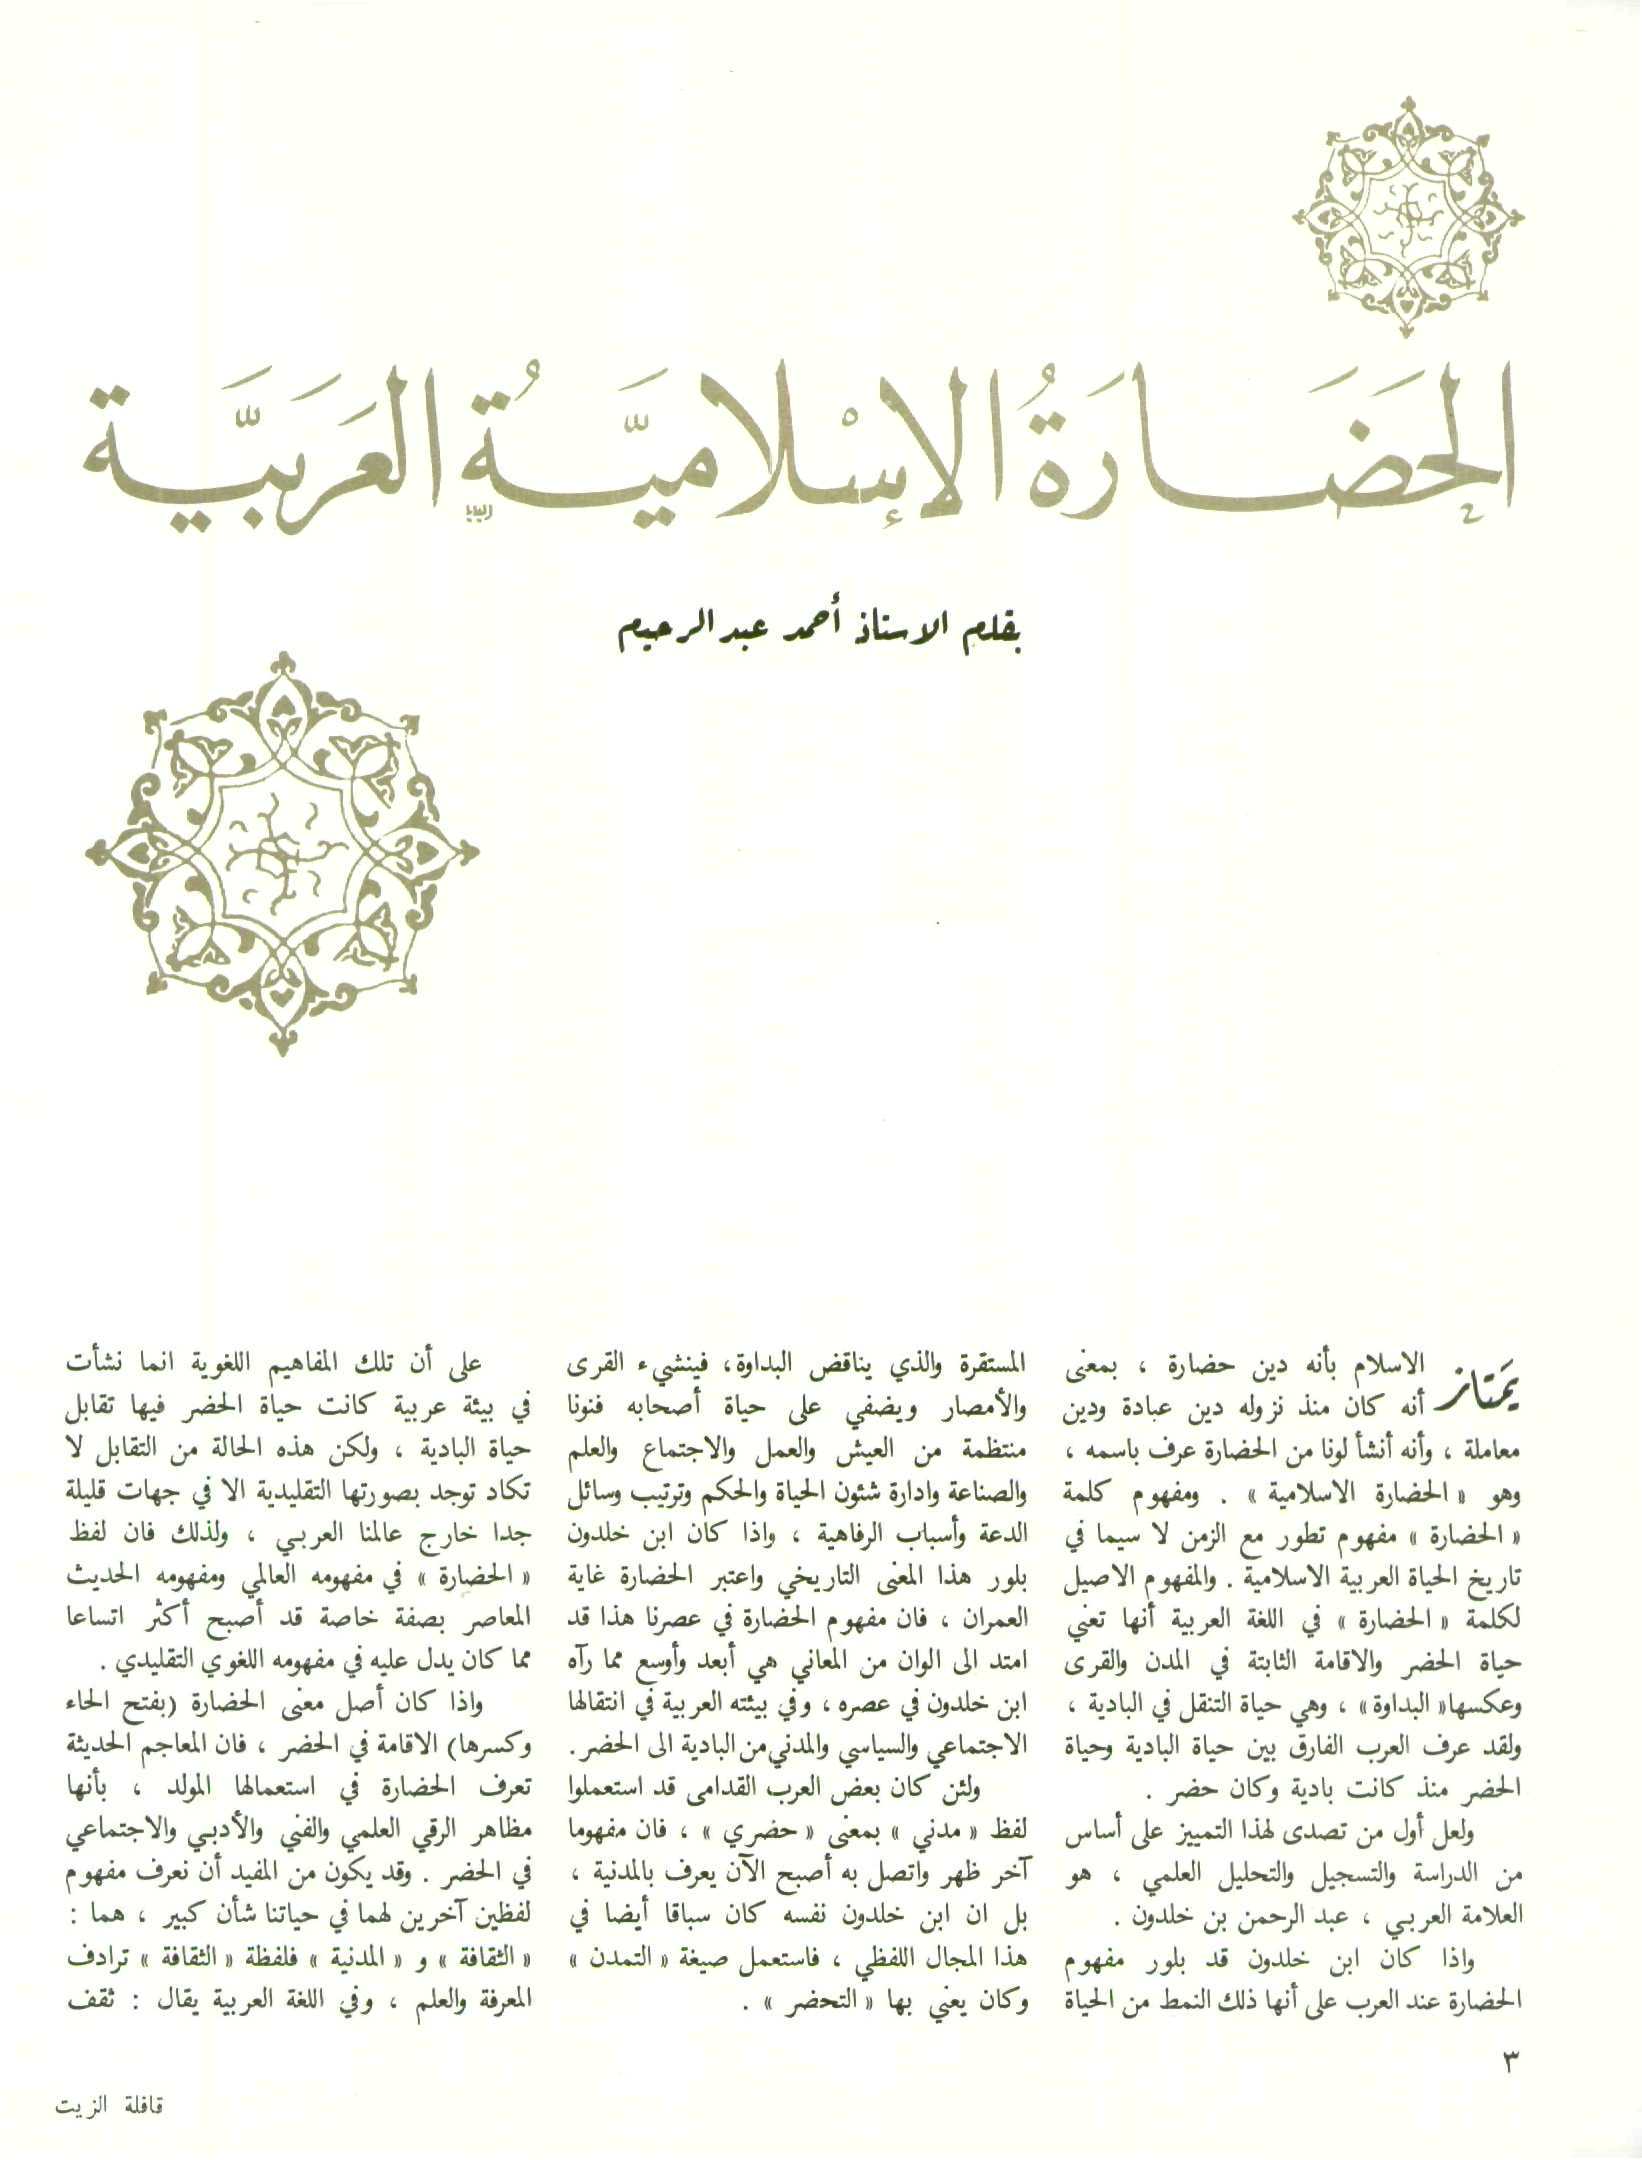 الحَضَارَةُ الإِسْلاميَّةُ العَرَبيَّة
بقلم الاستاذ أحمد عبد الرحيم
يمتاز الاسلام بأنه دين حضارة ، بمعنى
أنه كان منذ نزوله دين عبادة ودين
معاملة ، وأنه أنشأ لونا من الحضارة عرف باسمه ،
وهو « الحضارة الاسلامية » . ومفهوم كلمة
« الحضارة » مفهوم تطور مع الزمن لا سيما في
تاريخ الحياة العربية الاسلامية . والمفهوم الاصيل
لكلمة « الحضارة » في اللغة العربية أنها تعني
حياة الحضر والاقامة الثابتة في المدن والقرى
وعكسها« البداوة» ، وهي حياة التنقل في البادية ،
ولقد عرف العرب الفارق بين حياة البادية وحياة
الحضر منذ كانت بادية وكان حضر .
ولعل أول من تصدى لهذا التمييز على أساس
من الدراسة والتسجيل والتحليل العلمي ، هو
العلامة العربي ، عبد الرحمن بن خلدون .
واذا كان ابن خلدون قد بلور مفهوم
الحضارة عند العرب على أنها ذلك النمط من الحياة
المستقرة والذي يناقض البداوة، فينشيء القرى
والأمصار ويضفي على حياة أصحابه فنونا
منتظمة من العيش والعمل والاجتماع والعلم
والصناعة وادارة شئون الحياة والحكم وترتيب وسائل
الدعة وأسباب الرفاهية ، واذا كان ابن خلدون
بلور هذا المعنى التاريخي واعتبر الحضارة غاية
العمران ، فان مفهوم الحضارة في عصرنا هذا قد
امتد الى الوان من المعاني هي أبعد وأوسع مما رآه
ابن خلدون في عصره ، وفي بيئته العربية في انتقالها
الاجتماعي والسياسي والمدني من البادية الى الحضر.
ولئن كان بعض العرب القدامى قد استعملوا
لفظ « مدني » بمعنى « حضري » ، فان مفهوما
آخر ظهر واتصل به أصبح الآن يعرف بالمدنية ،
بل ان ابن خلدون نفسه كان سباقا أيضا في
هذا المجال اللفظي ، فاستعمل صيغة « التمدن »
وكان يعني بها « التحضر » .
على أن تلك المفاهيم اللغوية انما نشأت
في بيئة عربية كانت حياة الحضر فيها تقابل
حياة البادية ، ولكن هذه الحالة من التقابل لا
تكاد توجد بصورتها التقليدية الا في جهات قليلة
جدا خارج عالمنا العربي ، ولذلك فان لفظ
« الحضارة » في مفهومه العالمي ومفهومه الحديث
المعاصر بصفة خاصة قد أصبح أكثر اتساعا
مما كان يدل عليه في مفهومه اللغوي التقليدي .
واذا كان أصل معنى الحضارة (بفتح الحاء
وكسرها) الاقامة في الحضر ، فان المعاجم الحديثة
تعرف الحضارة في استعمالها المولد ، بأنها
مظاهر الرقي العلمي والفني والأدبي والاجتماعي
في الحضر . وقد يكون من المفيد أن نعرف مفهوم
لفظين آخرين لهما في حياتنا شأن كبير ، هما :
« الثقافة » و « المدنية » فلفظة « الثقافة » ترادف
المعرفة والعلم ، وفي اللغة العربية يقال : ثقف
٣
قافلة الزيت